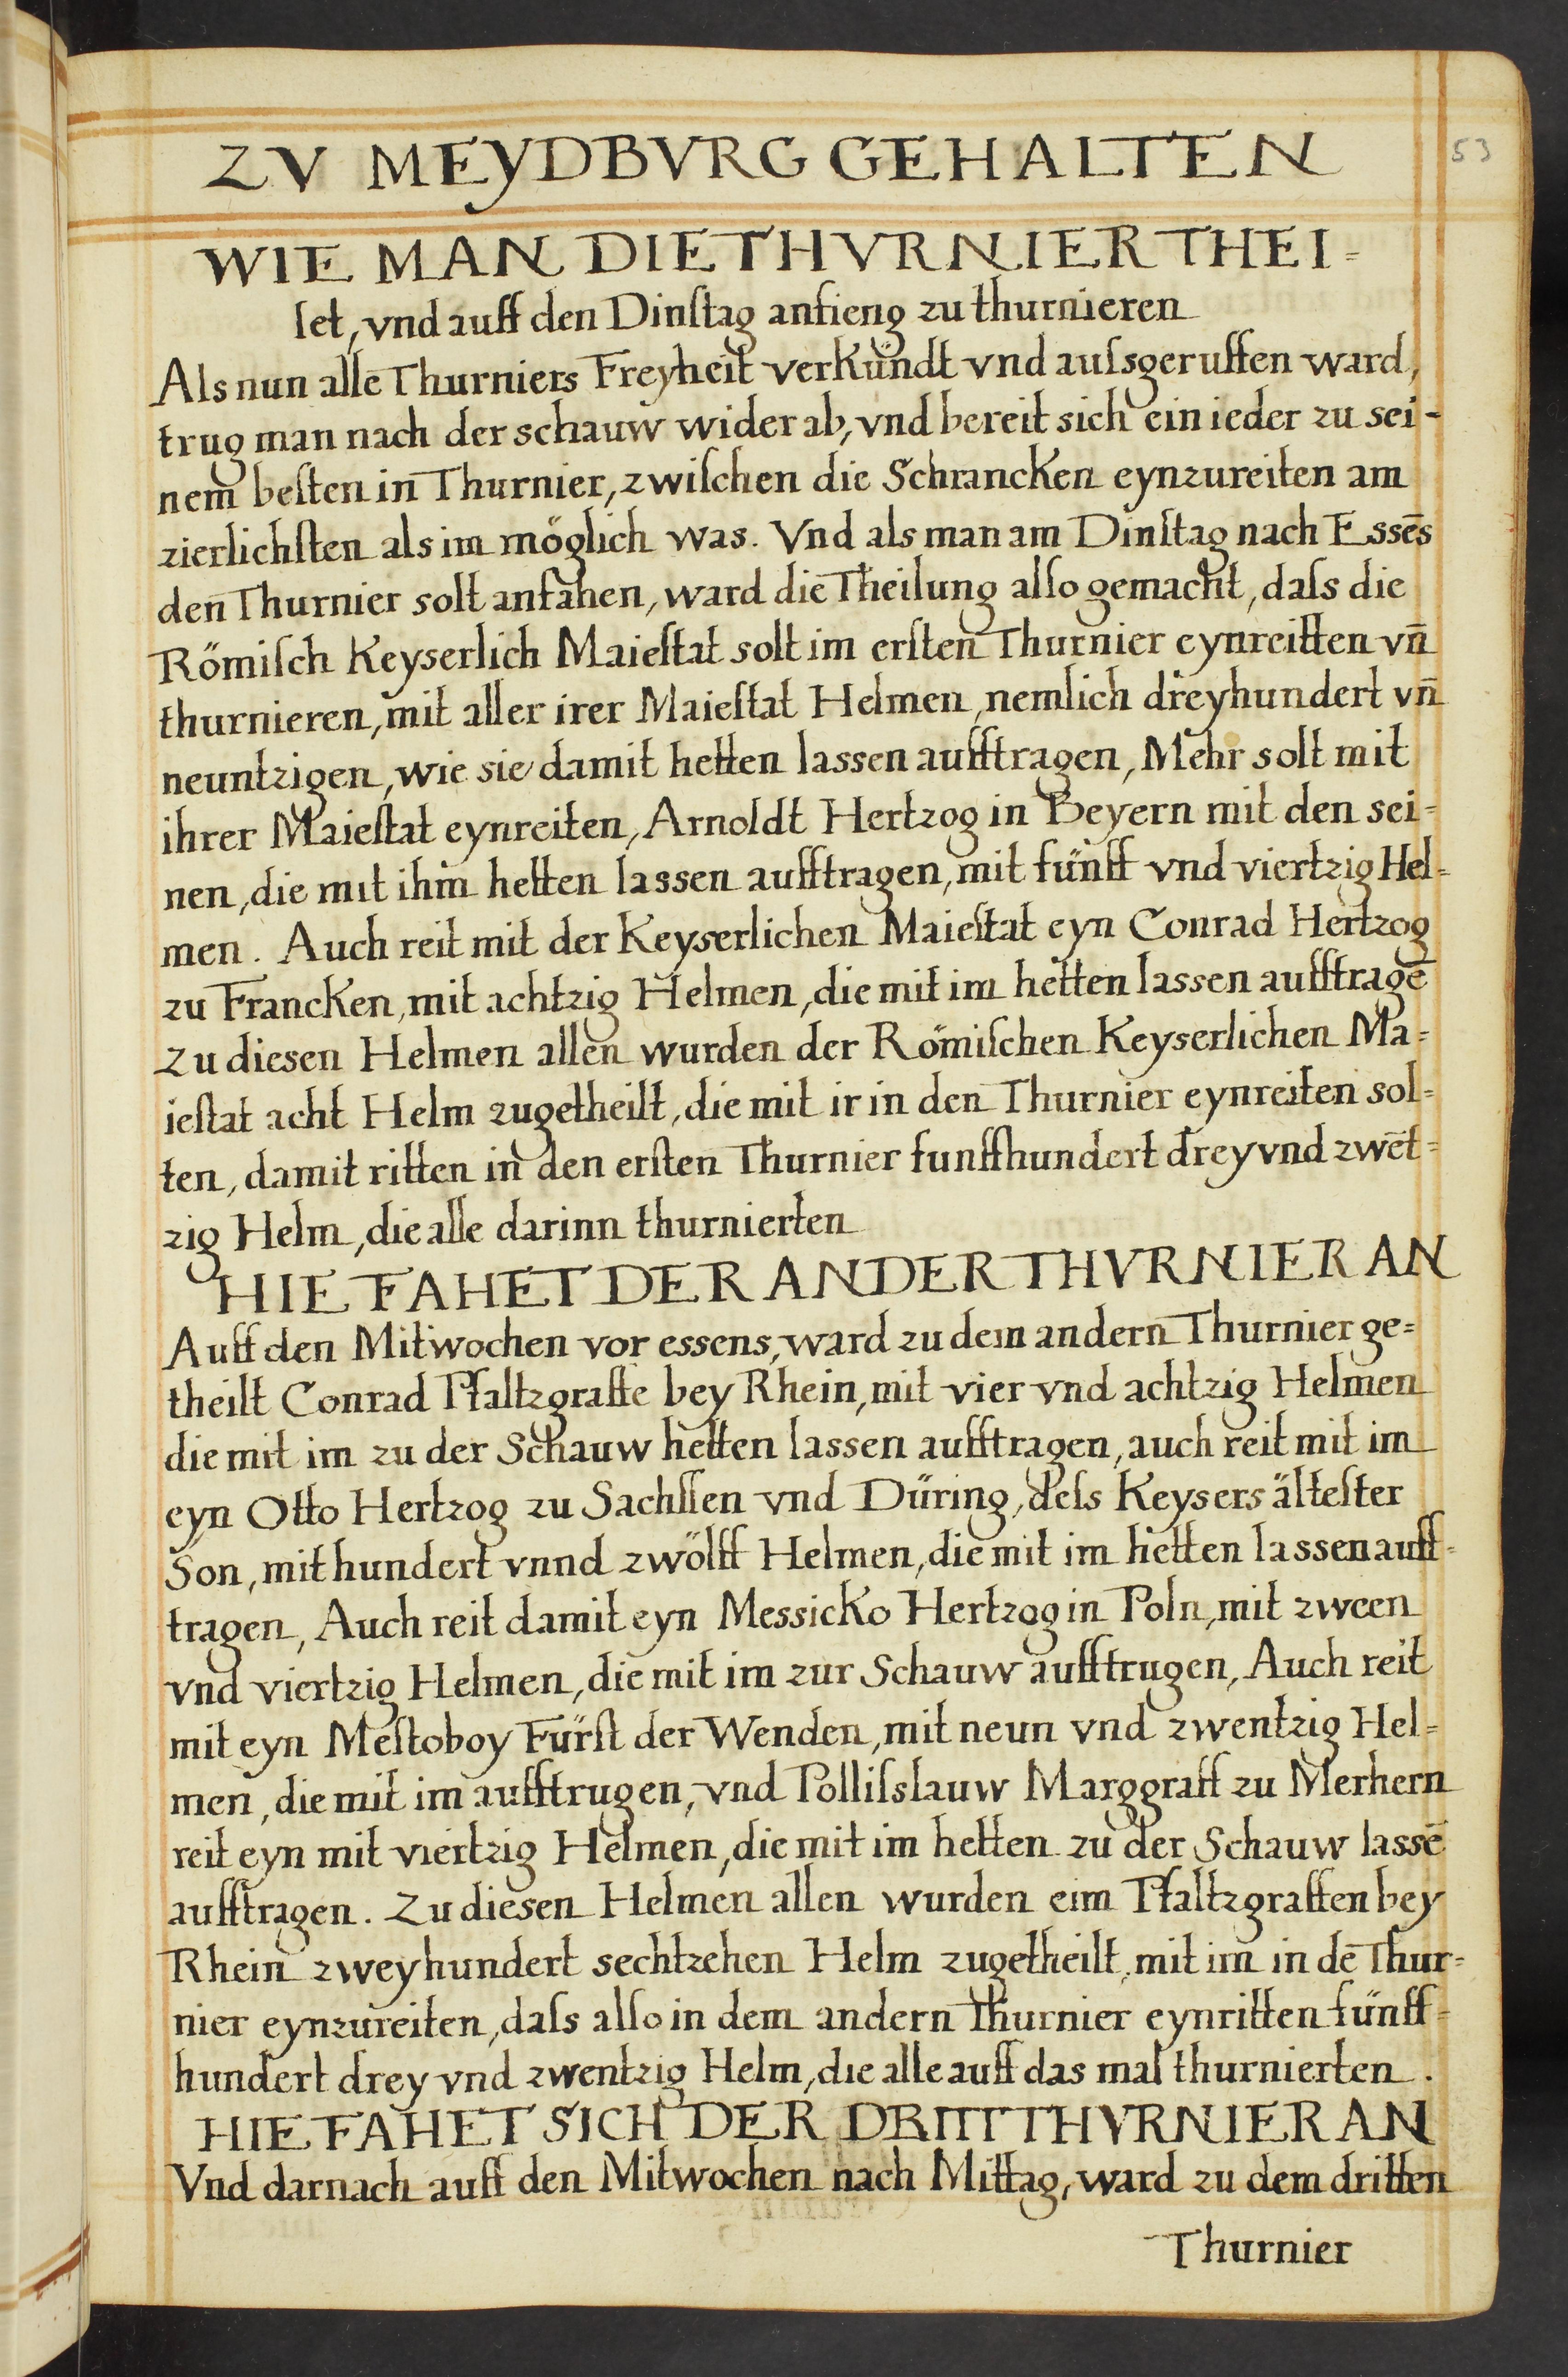 53
ZV MEYDBVRG GEHALTEN
WIE MAN DIE THVRNIER THEI=
let, vnd auff den Dinſtag anfieng zu thurnieren
Als nun alle Thurniers Freyheit verkündt vnd auſsgeruffen ward,
trug man nach der schauw wider ab, vnd bereit sich ein ieder zu sei-
nem beſten in Thurnier, zwiſchen die Schrancken eynzureiten am
zierlichſten als im möglich was. Vnd als man am Dinſtag nach Essēs
den Thurnier solt anfahen, ward die Theilung alſo gemacht, daſs die
Römiſch Keyserlich Maieſtat solt im erſten Thurnier eynreitten vn̄
thurnieren, mit aller irer Maieſtat Helmen, nemlich dreyhundert vn̄
neuntzigen, wie sie damit hetten lassen aufftragen, Mehr solt mit
ihrer Maieſtat eynreiten, Arnoldt Hertzog in Beyern mit den sei=
nen, die mit ihm hetten lassen aufftragen, mit fünff vnd viertzig Hel=
men. Auch reit mit der Keyserlichen Maieſtat eyn Conrad Hertzog
zu Francken, mit achtzig Helmen, die mit im hetten lassen aufftragē
Zu diesen Helmen allen wurden der Römiſchen Keyserlichen Ma=
ieſtat acht Helm zugetheilt, die mit ir in den Thurnier eynreiten sol=
ten, damit ritten in den erſten Thurnier funffhundert drey vnd zwēt=
zig Helm, die alle darinn thurnierten
HIE FAHET DER ANDER THVRNIER AN
Auff den Mitwochen vor essens, ward zu dem andern Thurnier ge=
theilt Conrad Pfaltzgraffe bey Rhein, mit vier vnd achtzig Helmen
die mit im zu der Schauw hetten lassen aufftragen, auch reit mit im
eyn Otto Hertzog zu Sachſſen vnd Düring, deſs Keysers älteſter
Son, mit hundert vnnd zwölff Helmen, die mit im hetten lassen auff=
tragen, Auch reit damit eyn Messicko Hertzog in Poln, mit zween
vnd viertzig Helmen, die mit im zur Schauw aufftrugen, Auch reit
mit eyn Meſtoboy Fürſt der Wenden, mit neun vnd zwentzig Hel=
men, die mit im aufftrugen, vnd Polliſslauw Marggraff zu Merhern
reit eyn mit viertzig Helmen, die mit im hetten zu der Schauw lassē
aufftragen. Zu diesen Helmen allen wurden eim Pfaltzgraffen bey
Rhein zweyhundert sechtzehen Helm zugetheilt, mit im in dē Thur=
nier eynzureiten, daſs alſo in dem andern Thurnier eynritten fünff=
hundert drey vnd zwentzig Helm, die alle auff das mal thurnierten.
HIE FAHET SICH DER DRITT THVRNIER AN
Vnd darnach auff den Mitwochen nach Mittag, ward zu dem dritten
Thurnier